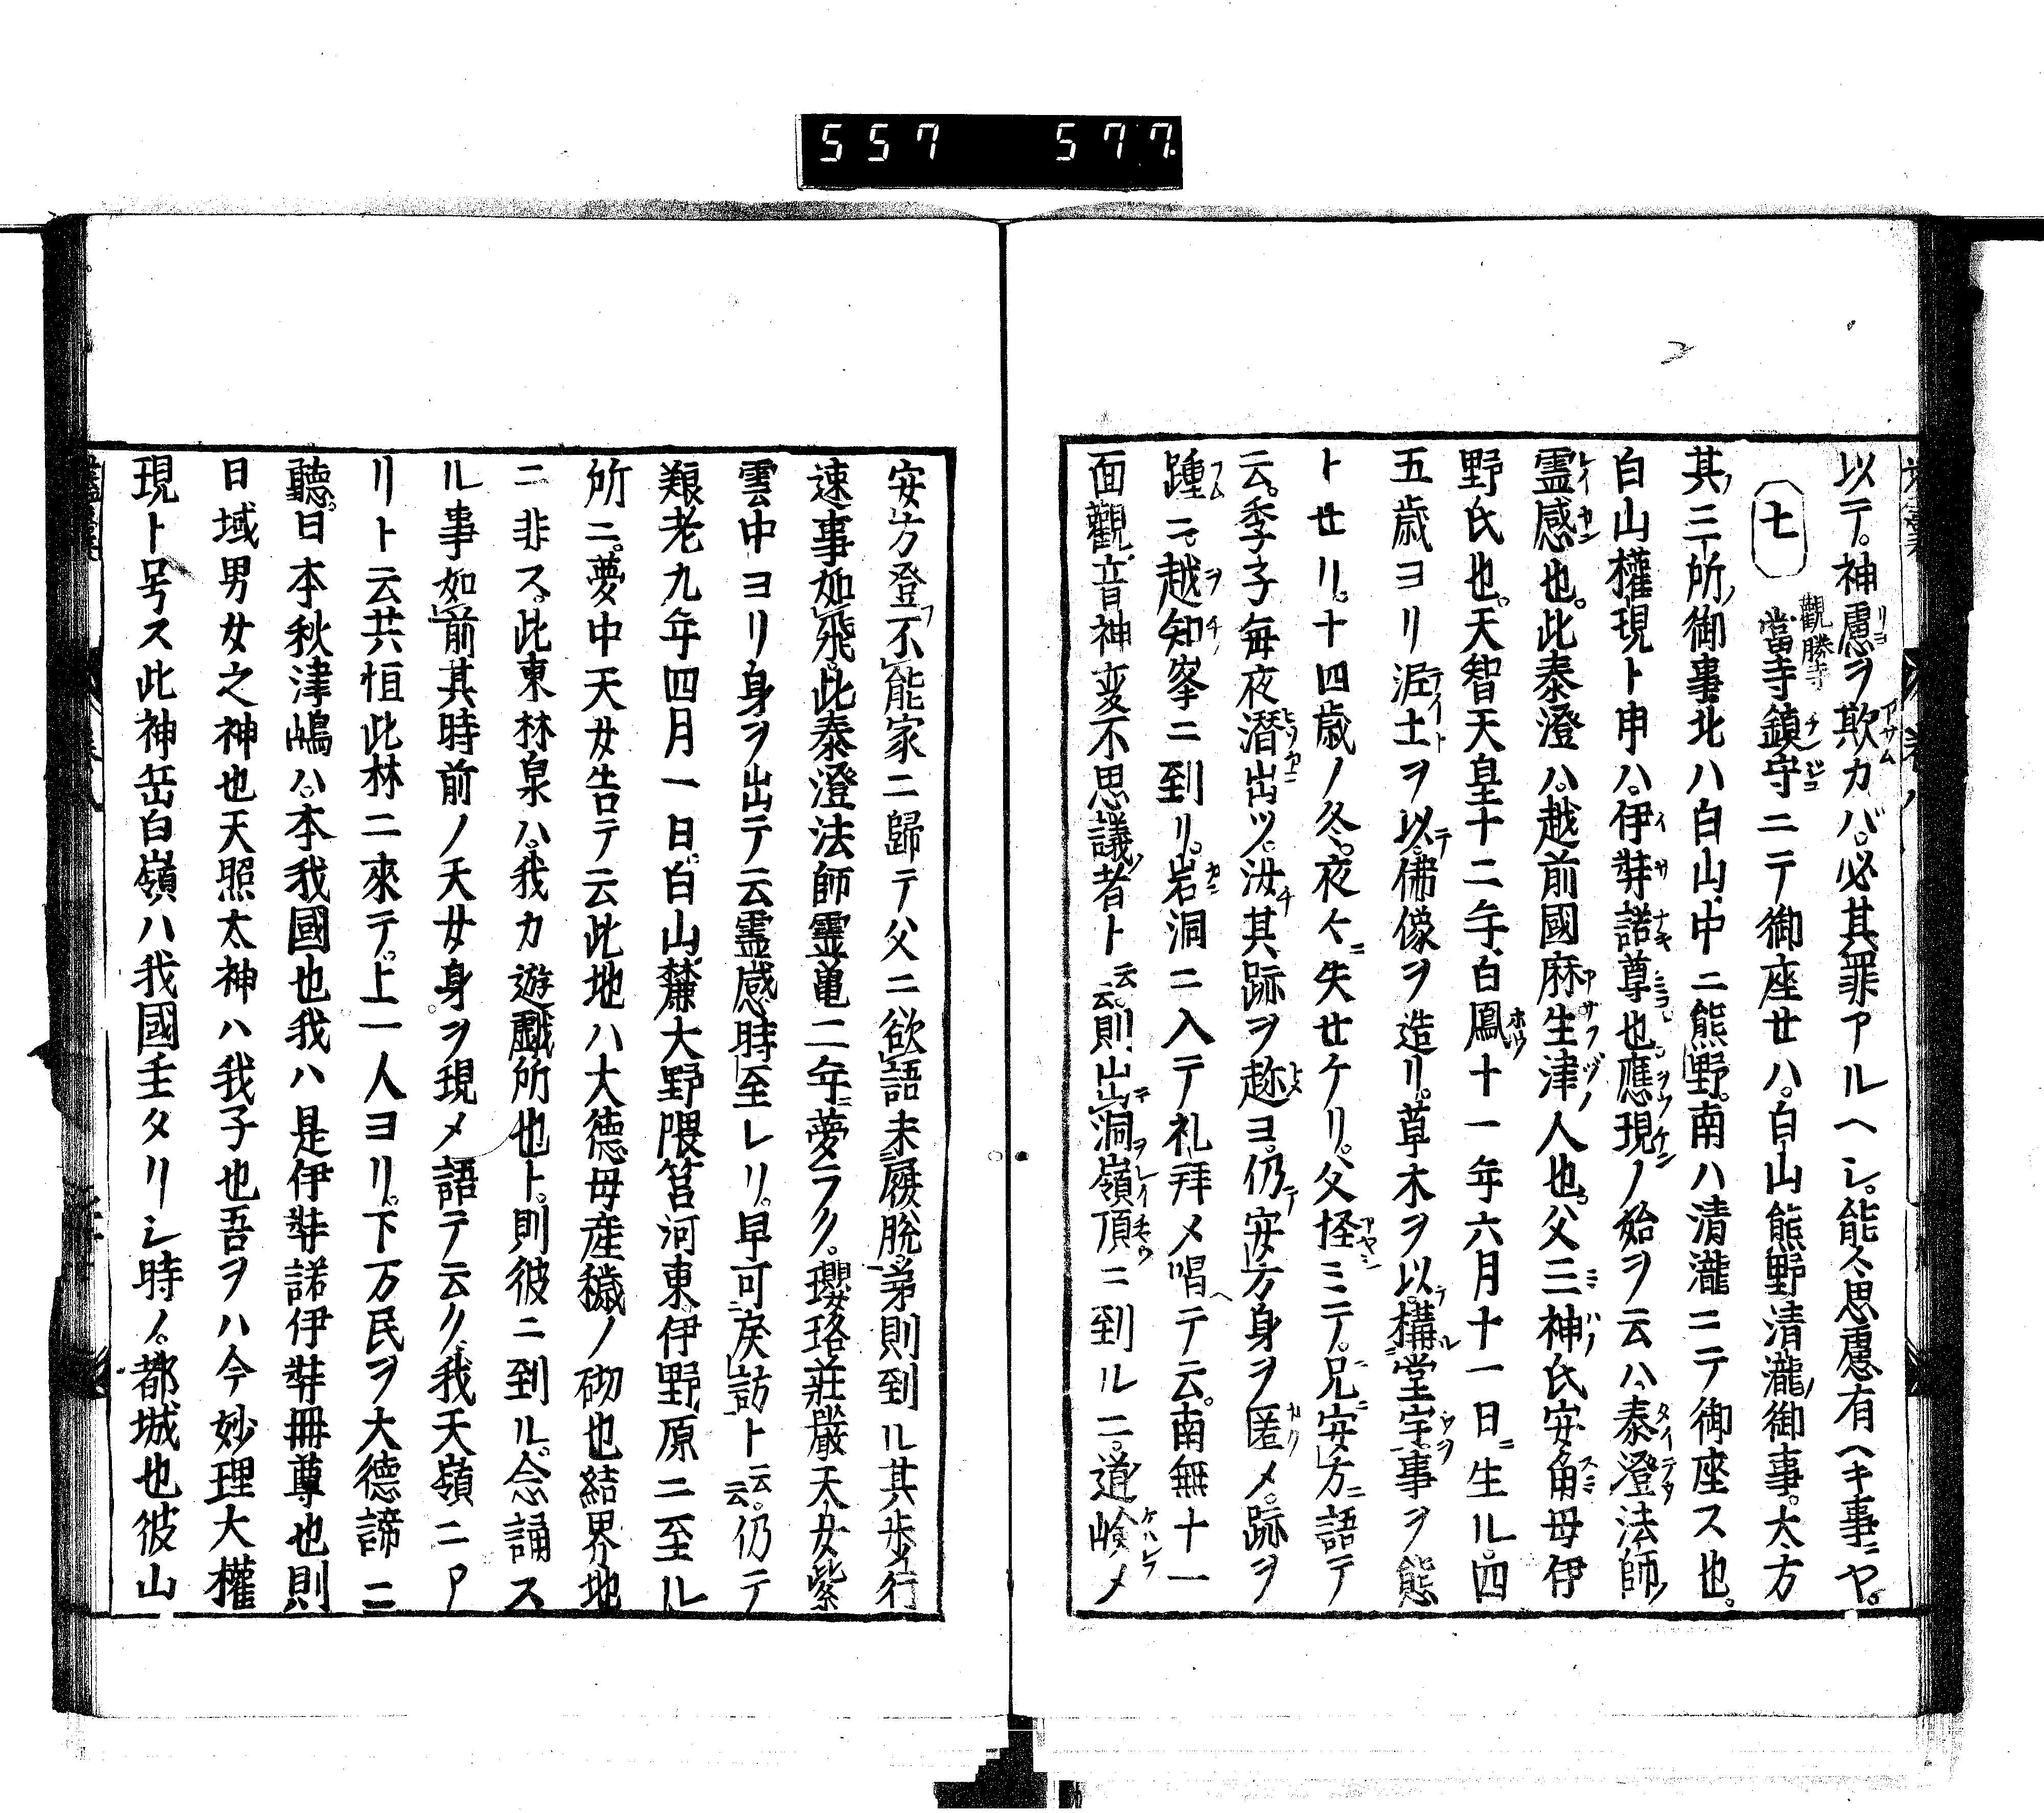 557 577
以テ。神慮ヲ欺カバ。必其罪アルヘシ。能々思慮有ヘキ事ニヤ。
七 當寺觀勝寺鎮守ニテ御座セハ。白山熊野清瀧ノ御事。大方
其ノ三所ノ御事北ハ白山。中ニ熊野。南ハ清瀧ニテ御座ス也。
白山權現ト申ハ。伊弉諾尊也應現ノ始ヲ云ハ、泰澄法師ノ
霊感也。此泰澄ハ。越前國麻生津ノ人也。父三神氏安角母伊
野氏也。天智天皇十二年、白鳳十一年六月十一日ニ生ル。四
五歳ヨリ泥土ヲ以テ。佛像ヲ造リ。草木ヲ以テ。構ル堂宇ヲ事ヲ態
トセリ。十四歳ノ冬。夜々ニ失セケリ。父怪ミテ。兄ニ安方ニ語テ
云。季子毎夜潜出ツ。汝其跡ヲ趂ヨ。仍テ安方身ヲ匿メ。跡ヲ
踵ニ。越知峯ニ到リ。岩洞ニ入テ礼拜メ唱ヘテ云。南無十一
面觀音神変不思議者ト云云。則出洞嶺頂ニ到ルニ。道嶮メ
安方登不能家ニ歸テ父ニ欲語未屐脫。弟則到ル其歩行
速事如飛。此泰澄法師霊亀二年ニ夢ラク。瓔珞莊嚴天女紫
雲中ヨリ身ヲ出テ云霊感時至レリ。早可戻訪ト云云。仍テ
艱老九年四月一日。白山麓大野隈筥河東伊野原ニ至ル
所ニ。夢中天女告テ云此地ハ大德母産穢ノ砌也結界地
ニ非ス。此東林泉ハ。我カ遊戯所也ト。則彼ニ到ル。念誦ス
ル事如前其時前ノ天女身ヲ現メ語テ云ク。我天嶺ニア
リト云共恒此林ニ來テ。上一人ヨリ。下万民ヲ大德諦ニ
聽。日本秋津嶋ハ。本我國也我ハ是伊弉諾伊弉冊尊也則
日域男女之神也天照太神ハ我子也吾ヲハ今妙理大權
現ト号ス此神岳白嶺ハ我國主タリシ時ノ。都城也彼山